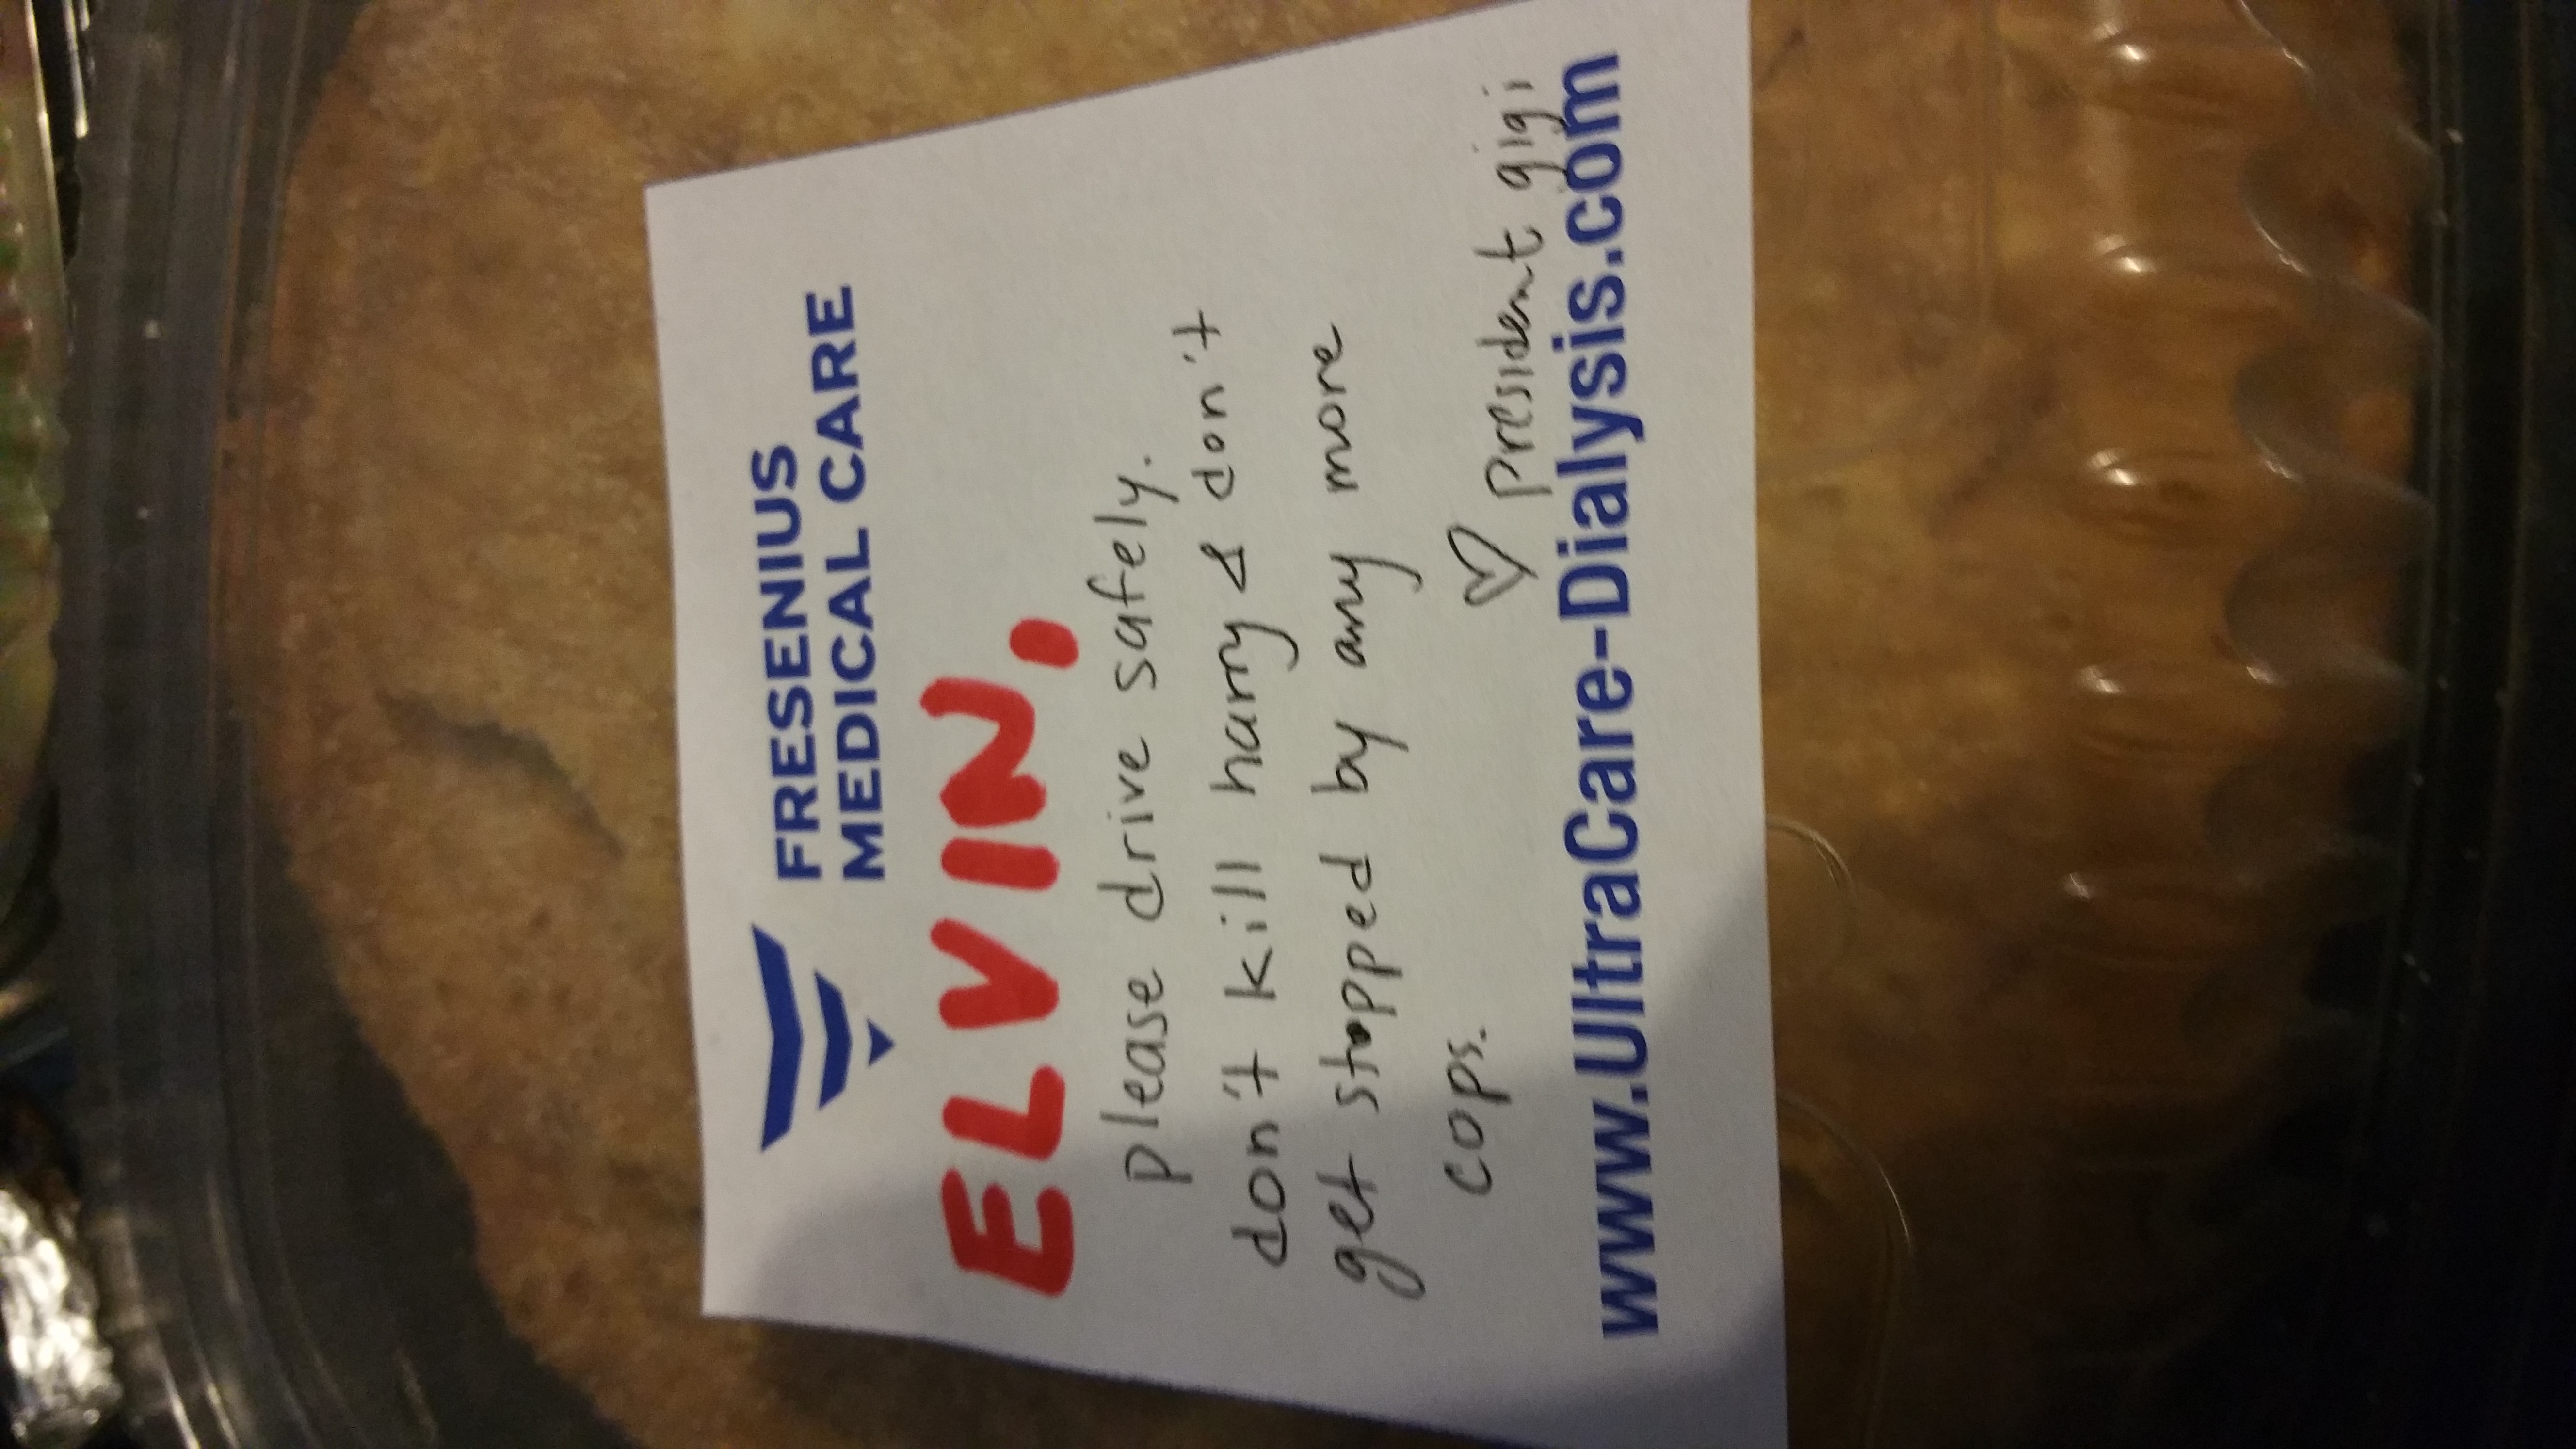 FRESENIUS
MEDICAL CARE
ELVIN,
please drive safely.
don't kill harry & don't
get stopped by any more
cops.
♡ president gigi
www.UltraCare-Dialysis.com